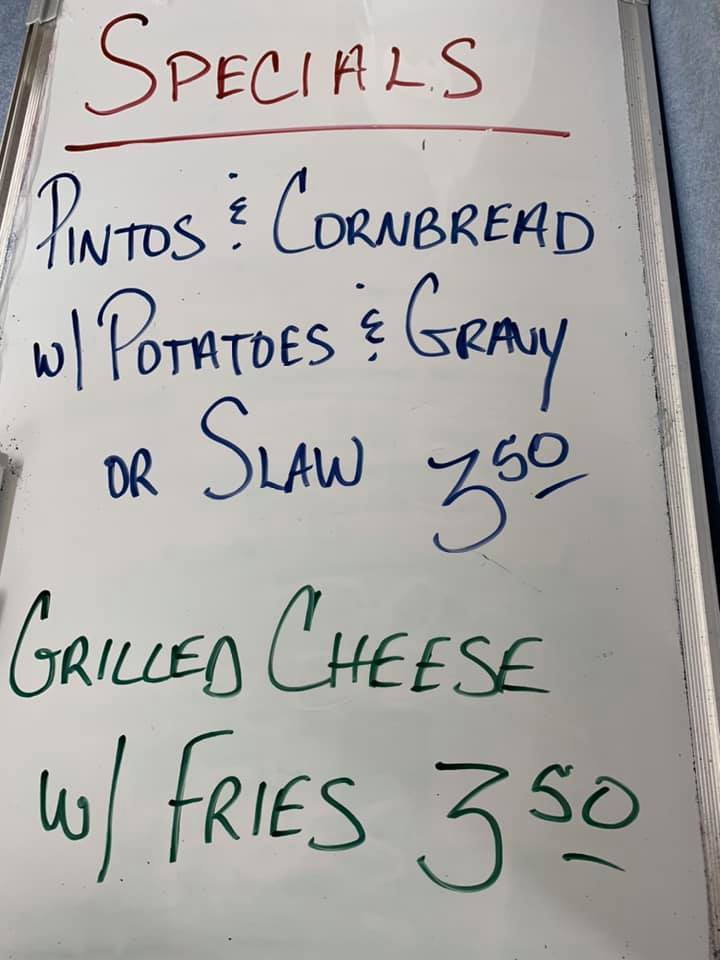 SPECIALS
PINTOS & CORNBREAD
w/ POTATOES & GRAVY
OR SLAW 3 50
GRILLED CHEESE
w/ FRIES 3 50